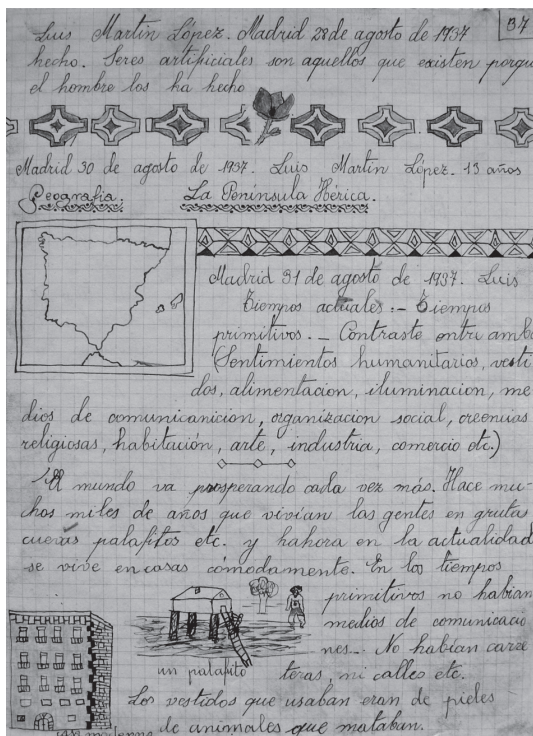 37
Luis Martín López. Madrid 28 de agosto de 1937
hecho. Seres artificiales son aquellos que existen porqu
el hombre los ha hecho
Madrid 30 de agosto de 1937. Luis Martín López. 13 años
Geografía. La Península Ibérica.
Madrid 31 de agosto de 1937. Luis
Tiempos actuales.- Tiempos
primitivos. - Contraste entre amb
(Sentimientos humanitarios, vesti
dos, alimentación, iluminacion, me
dios de comunicanicion, organizacion social, creencias
religiosas, habitación, arte, industria, comercio etc.)
El mundo va prosperando cada vez más. Hace mu-
chos miles de años que vivían las gentes en grutas
cuevas palafitos etc. y hahora en la actualidad
se vive en casas cómodamente. En los tiempos
primitivos no habían
medios de comunicacio
nes.- No habían carre
teras, ni calles etc.
un palafito
Los vestidos que usaban eran de pieles
de animales que mataban.